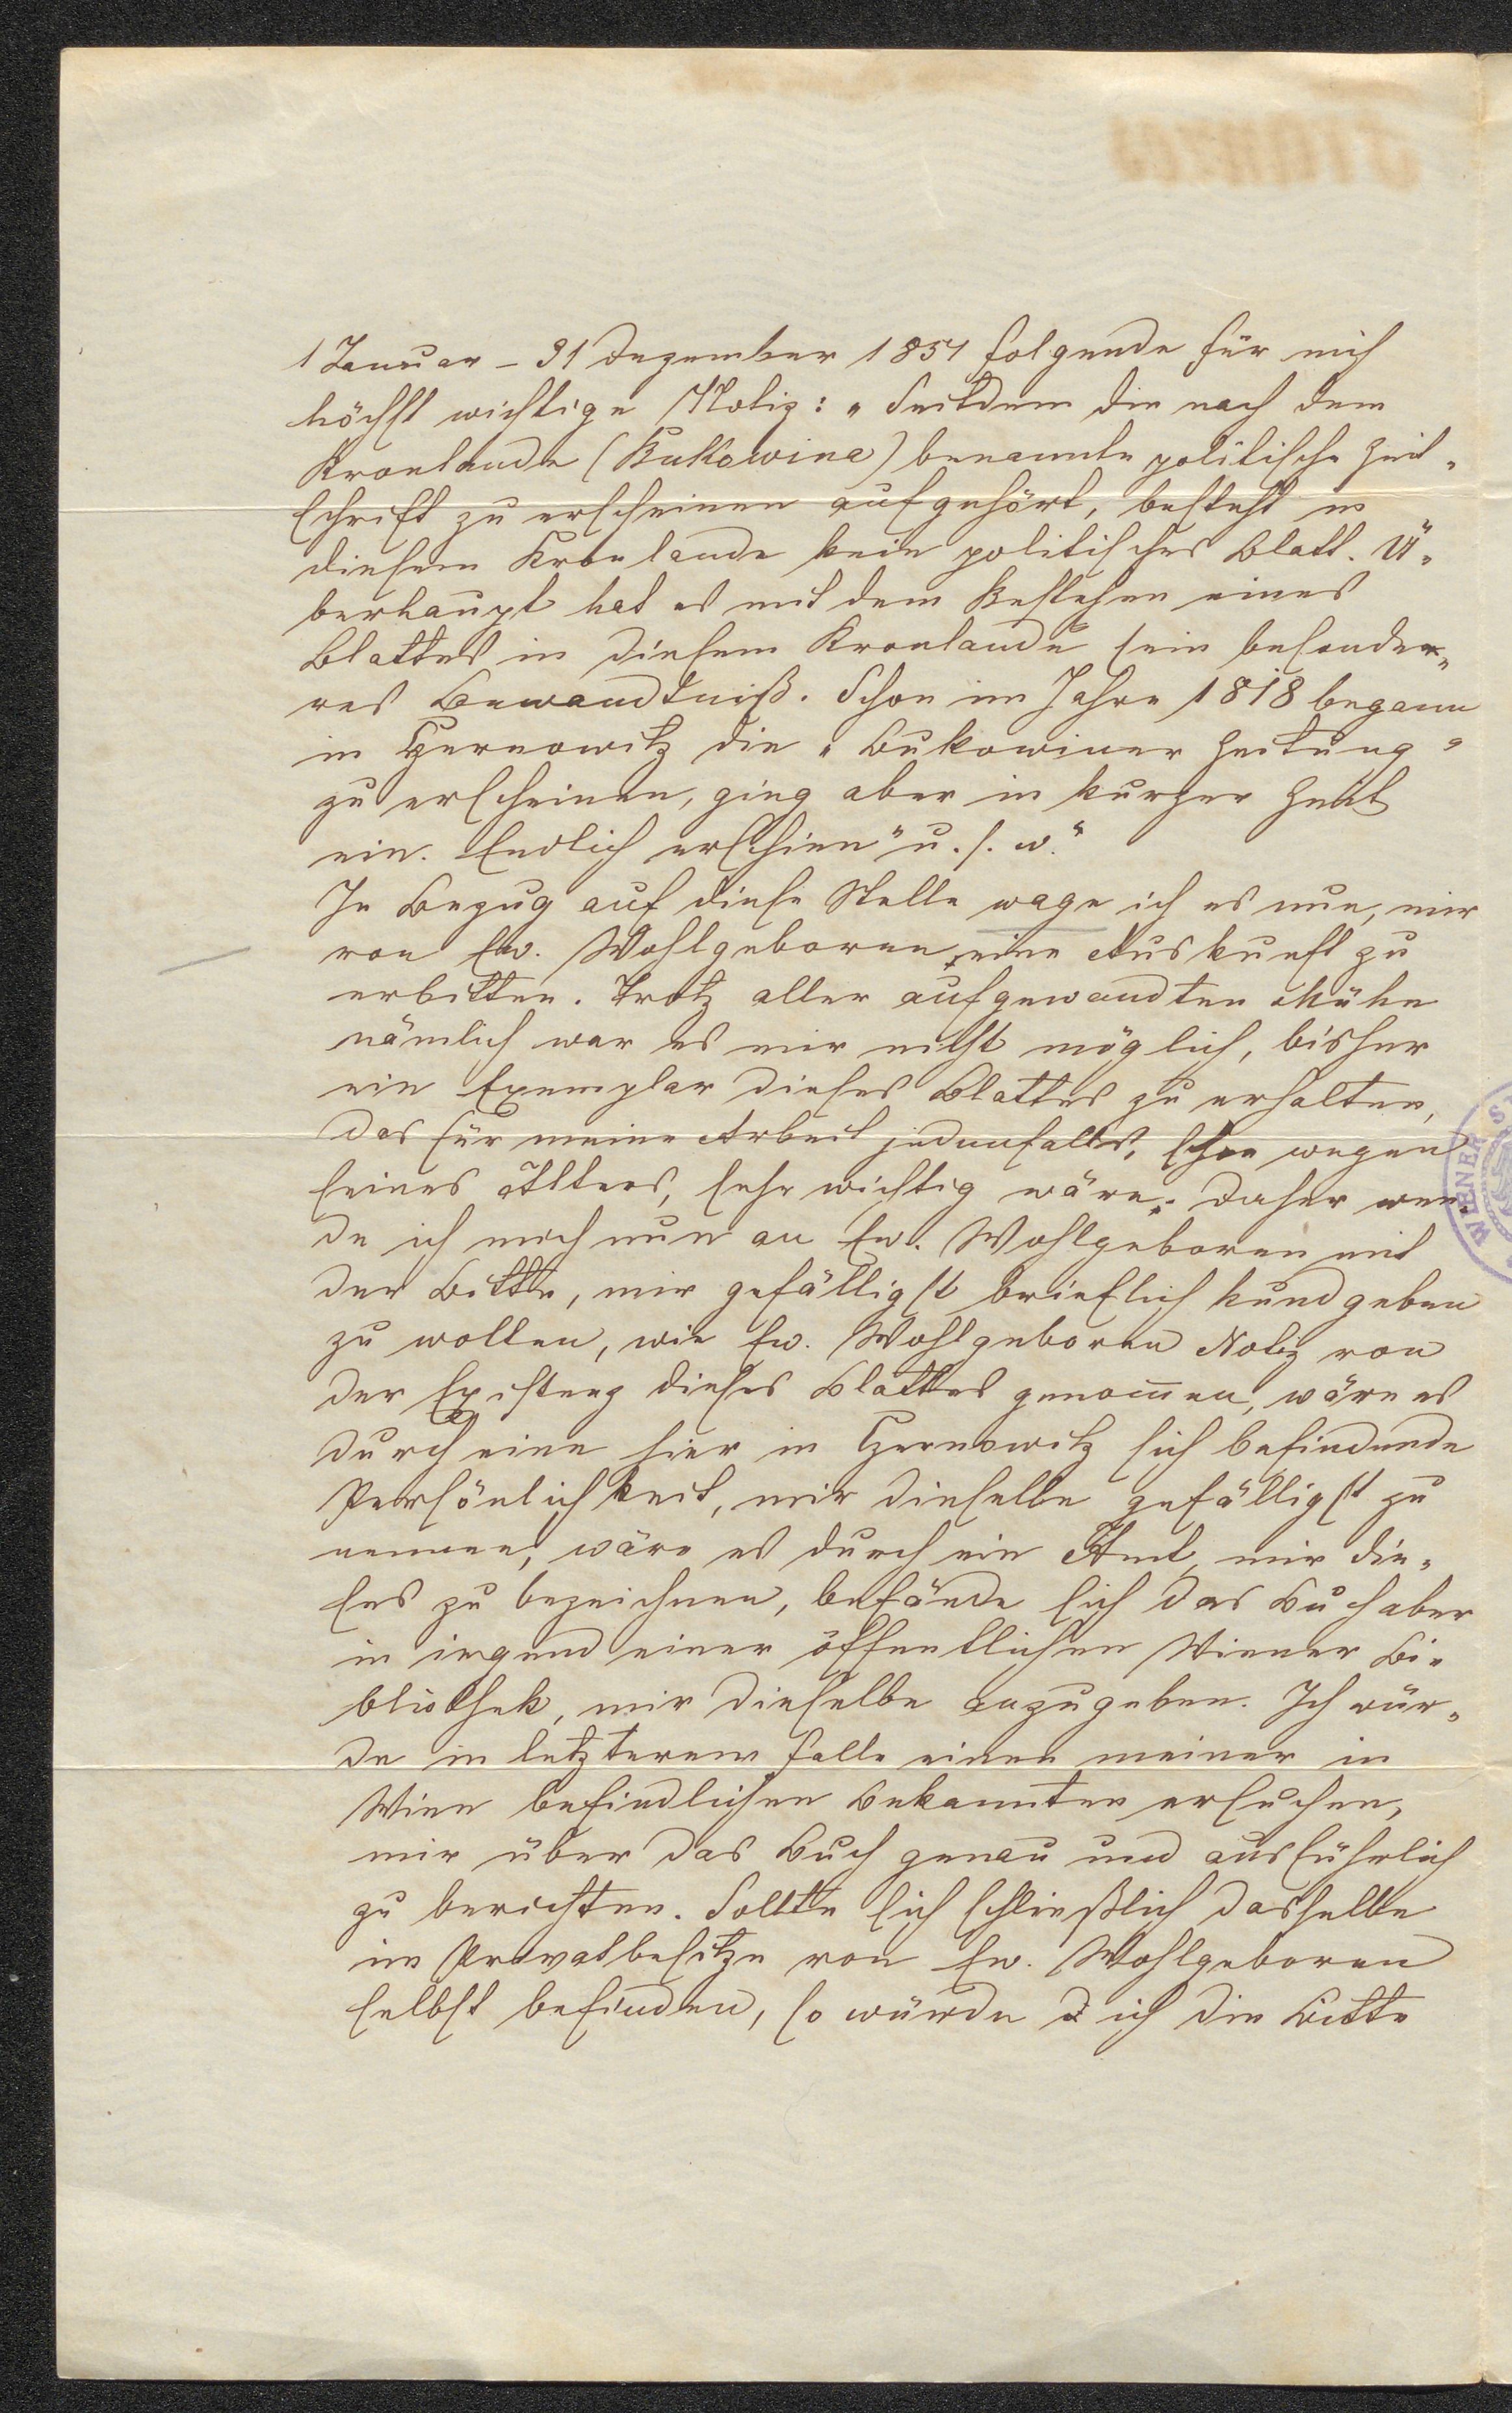 1 Januar – 31 Dezember 1851 folgende für mich
höchst wichtige Notiz: „Seitdem die nach dem
Kronlande (Bukowina) benannte politische Zeit-
schrift zu erscheinen aufgehört, besteht in
diesem Kronlande kein politisches Blatt. Ü-
berhaupt hat es mit dem Bestehen eines
Blattes in diesem Kronlande sein besonde-
res Bewandtniß. Schon im Jahre 1818 begann
in Czernowitz die „Bukowiner Zeitung"
zu erscheinen, ging aber in kurzer Zeit
ein. Endlich erschien" u. s. w."
In Bezug auf diese Stelle wage ich es nun, mir
von Ew. Wohlgeboren eine Auskunft zu
erbitten. Trotz aller aufgewandten Mühe
nämlich war es mir nicht möglich, bisher
ein Exemplar dieses Blattes zu erhalten,
das für meine Arbeit jedenfalls, schon wegen
seines Alters, sehr wichtig wäre. Daher wen-
de ich mich nun an Ew. Wohlgeboren mit
der Bitte, mir gefälligst brieflich kundgeben
zu wollen, wie Ew. Wohlgeboren Notiz von
der Existenz dieses Blattes genom̄en, wäre es
durch eine hier in Czernowitz sich befindende
Persönlichkeit, mir dieselbe gefälligst zu
nennen, wäre es durch ein Amt, mir die-
ses zu bezeichnen, befände sich das Buch aber
in irgend einer öffentlichen Wiener Bi-
bliothek, mir dieselbe anzugeben. Ich wür-
de in letzterem Falle einen meiner in
Wien befindlichen Bekannten ersuchen,
mir über das Buch genau und ausführlich
zu berichten. Sollte sich schließlich dasselbe
im Privatbesitze von Ew. Wohlgeboren
selbst befinden, so würde ich die Bitte
WIENER